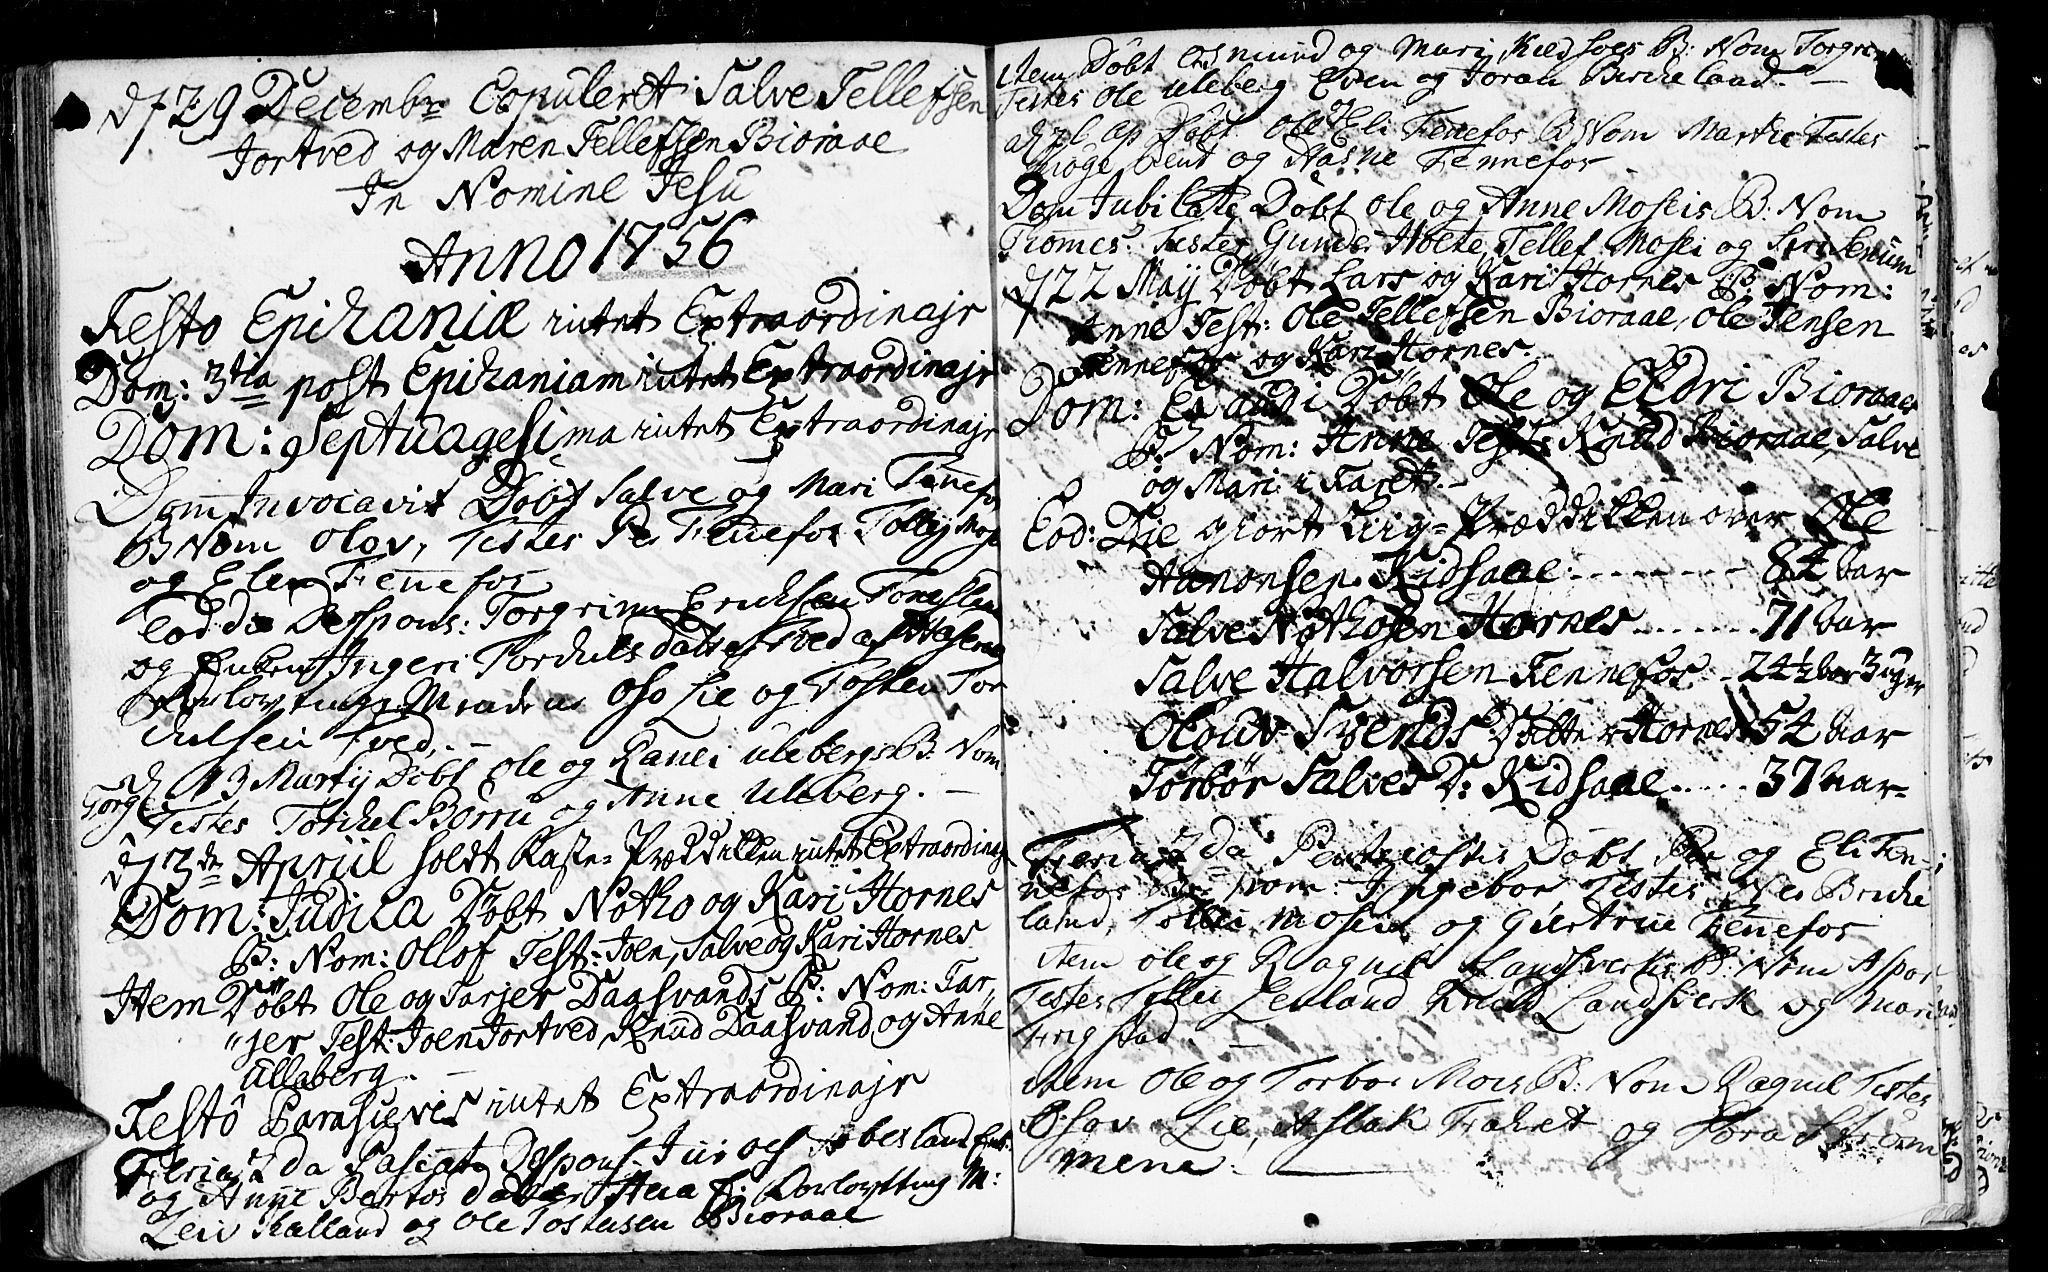 d 29 Decembr Copuleret Salve Tellefsen
Tortved og Maren Tellefsen Bioraae
In Nomine Jesu
Anno 1756
Festo Epihaniæ intet Extraordinajr
Dom: 3tia post Epihaniam intet Extraordinajr
Dom: Septuagesima intet Extraordinajr
Dom Invocavit Døbt Salve og Mari Fennefos
B Nom Olov, Testes Per Fennefos Tolly Mose
og Elen Fennefos
Eod die Despons: Torgrim Eriksen
og Enken Ingeri Torduls datter Tved af
Forlovtings Mænd Oso Lie og Tosten Tor
dulsen Tved. –
d 13 Martij Døbt Ole og Ranei Ulebergs B: Nom
Torge Testes Torkel Borru og Anne Uleberg. –
d 3de Apriil holdt Faste-Præddiken intet Extraordinajr
Dom: Judica Døbt Notho og Kari Hornes
B: Nom: Ollof Test: Joen, Salve og Kari Hornes
Item Døbt Ole og Tarjer Daasvands B: Nom: Tar,
"jer Test: Joen Tortved, Knud Daasvand og Anne
Ullaberg. –
Festo Parasceves intet Extraordinajr
Feria 2da Pascat Despons.
og Anne Bertos datter Forlovtting M:
Leiv Kalland og Ole Tostensen Bioraae
Item Døbt Osmund og Mari B: Nom Torgrim
Testes Ole Uleberg Even og Joran Birkeland. –
Døbt Ole Eli Fennefos B Nom Marthe Testes
Knud og Aasne Fennefos
Dom Jubilate Døbt Ole og Anne Moseis B: Nom
Thomes. Testes Gunde Holte, Tellef Mosei og
d 22 Maij Døbt Lars og Kari Hornes B: Nom:
Anne Test: Ole Tellefsen Bioraae, Ole Jensen
Fennefos og Kari Hornes.
Dom: Exaudi Døbt Ole og Eldri Bioraaes
B: Nom: Anne Test: Knud Bioraae, Salve
og Mari i Faret. –
Eod: Die giort Liig-Præddikken over Ole
Aanonsen Kidsaae: - - - - - - - - - 84 Aar
Salve Nothosen Hornes - - - - - - - 71 Aar
Salve Halvorsen Fennefos - - 24½ Aar 3 uger
Olouv Svends Datter Hornes 54 Aar
Torbor Salves D: Kidsaae - - - - - 37 Aar -
Feria 2da Pentecostes Døbt Per og Eli Fen-
nefos B: Nom: Ingebor Testes, Birke
land, Tolli Mosei og Giertrue Fennefos
Item Ole og Ragnil Landsverks B: Nom Aspor,
Testes Tellev Leuland Knud Landsverk og Mari
Frigstad. –
Item Ole og Torbor Moeis B: Nom Ragnil Testes
Osov Lie, Aslak Faaret og Tora Strøm
mene.